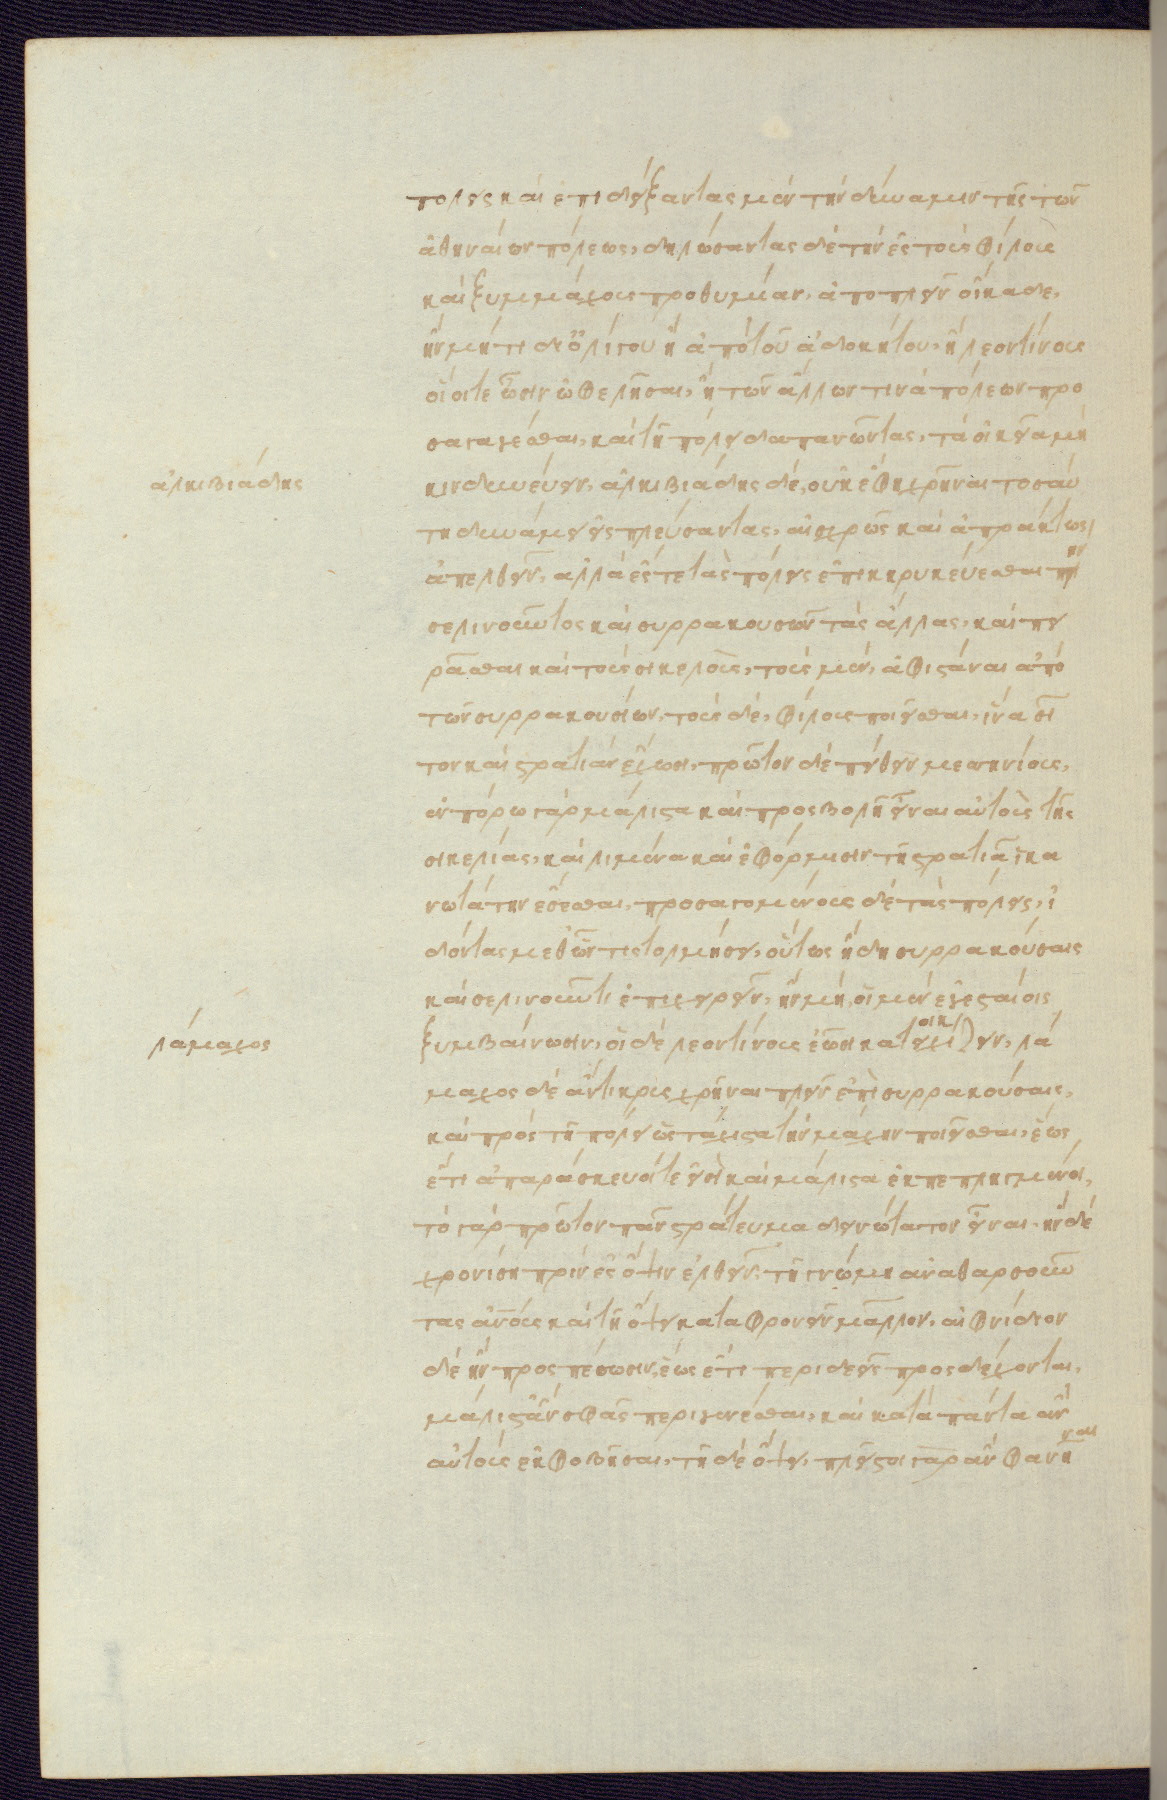 πόλεις καὶ ἐπιδείξαντας μὲν τὴν δύναμιν τῆς τῶν
ἀθηναίων πόλεως, δηλώσαντας δὲ τὴν ἐς τοὺς φίλους
καὶ ξυμμάχους προθυμίαν, ἀποπλεῖν οἴκαδε,
ἢν μή τι δι' ὀλίγου ἢ ἀπὸ τοῦ ἀδοκήτου, ἢ λεοντίνους
οἷοί τε ὦσιν ὠφελῆσαι, ἢ τῶν ἄλλων τινὰ πόλεων προ
σαγαγέσθαι, καὶ τῇ πόλει δαπανῶντας, τὰ οἰκεῖα μὴ
ἀλκιβιάδης
κινδυνεύειν, ἀλκιβιάδης δέ, οὐκ ἔφη χρῆναι τοσαύ
τῃ δυνάμει ἐκπλεύσαντας, αἰσχρῶς καὶ ἀπράκτως
ἀπελθεῖν, ἀλλὰ ἔς τε τὰς πόλεις ἐπικηρυκεύεσθαι πλὴν
σελινοῦντος καὶ συρρακουσῶν τὰς ἄλλας, καὶ πει
ρᾶσθαι καὶ τοὺς σικελοὺς, τοὺς μὲν, ἀφιστάναι ἀπὸ
τῶν συρρακουσίων, τοὺς δὲ, φίλους ποιεῖσθαι, ἵνα σῖ
τον καὶ στρατιὰν ἔχωσι, πρῶτον δὲ πείθειν μεσσηνίους,
ἐν πόρῳ γὰρ μάλιστα καὶ προσβολῇ εἶναι αὐτοὺς τῆς
σικελίας, καὶ λιμένα καὶ ἐφόρμησιν τῇ στρατιᾷ ἱκα
νωτάτην ἔσεσθαι, προσαγομένους δὲ τὰς πόλεις, εἰ
δόντας μεθ' ὧν τις πολεμήσει, οὕτως ἤδη συρρακούσαις
καὶ σελινοῦντι ἐπιχειρεῖν, ἢν μὴ, οἱ μὲν ἐγεσταίοις
λάμαχος
ξυμβαίνωσιν, οἱ δὲ λεοντίνους ἐῶσι κατοικίζειν, λά
μαχος δὲ ἄντικρυς χρῆναι πλεῖν ἐπὶ συρρακούσας,
καὶ πρὸς τῇ πόλει ὡς τάχιστα τὴν μάχην ποιεῖσθαι, ἕως
ἔτι ἀπαράσκευοί τε εἰσὶ καὶ μάλιστα ἐκπεπληγμένοι,
τὸ γὰρ πρῶτον πᾶν στράτευμα δεινότατον εἶναι, ἢν δὲ
χρονίσῃ πρὶν ἐς ὄψιν ἐλθεῖν, τῇ γνώμῃ ἀναθαρσοῦν
τας ἀνθρώπους καὶ τῇ ὄψει καταφρονεῖν μᾶλλον, αἰφνίδιον
δὲ ἢν προσπέσωσιν, ἕως ἔτι περιδεεῖς προσδέχονται,
μάλιστ' ἂν σφᾶς περιγενέσθαι, καὶ κατὰ πάντα ἂν
αὐτοὺς ἐκφοβῆσαι, τῇ δὲ ὄψει, πλεῖστοι γὰρ ἂν φανῆναι